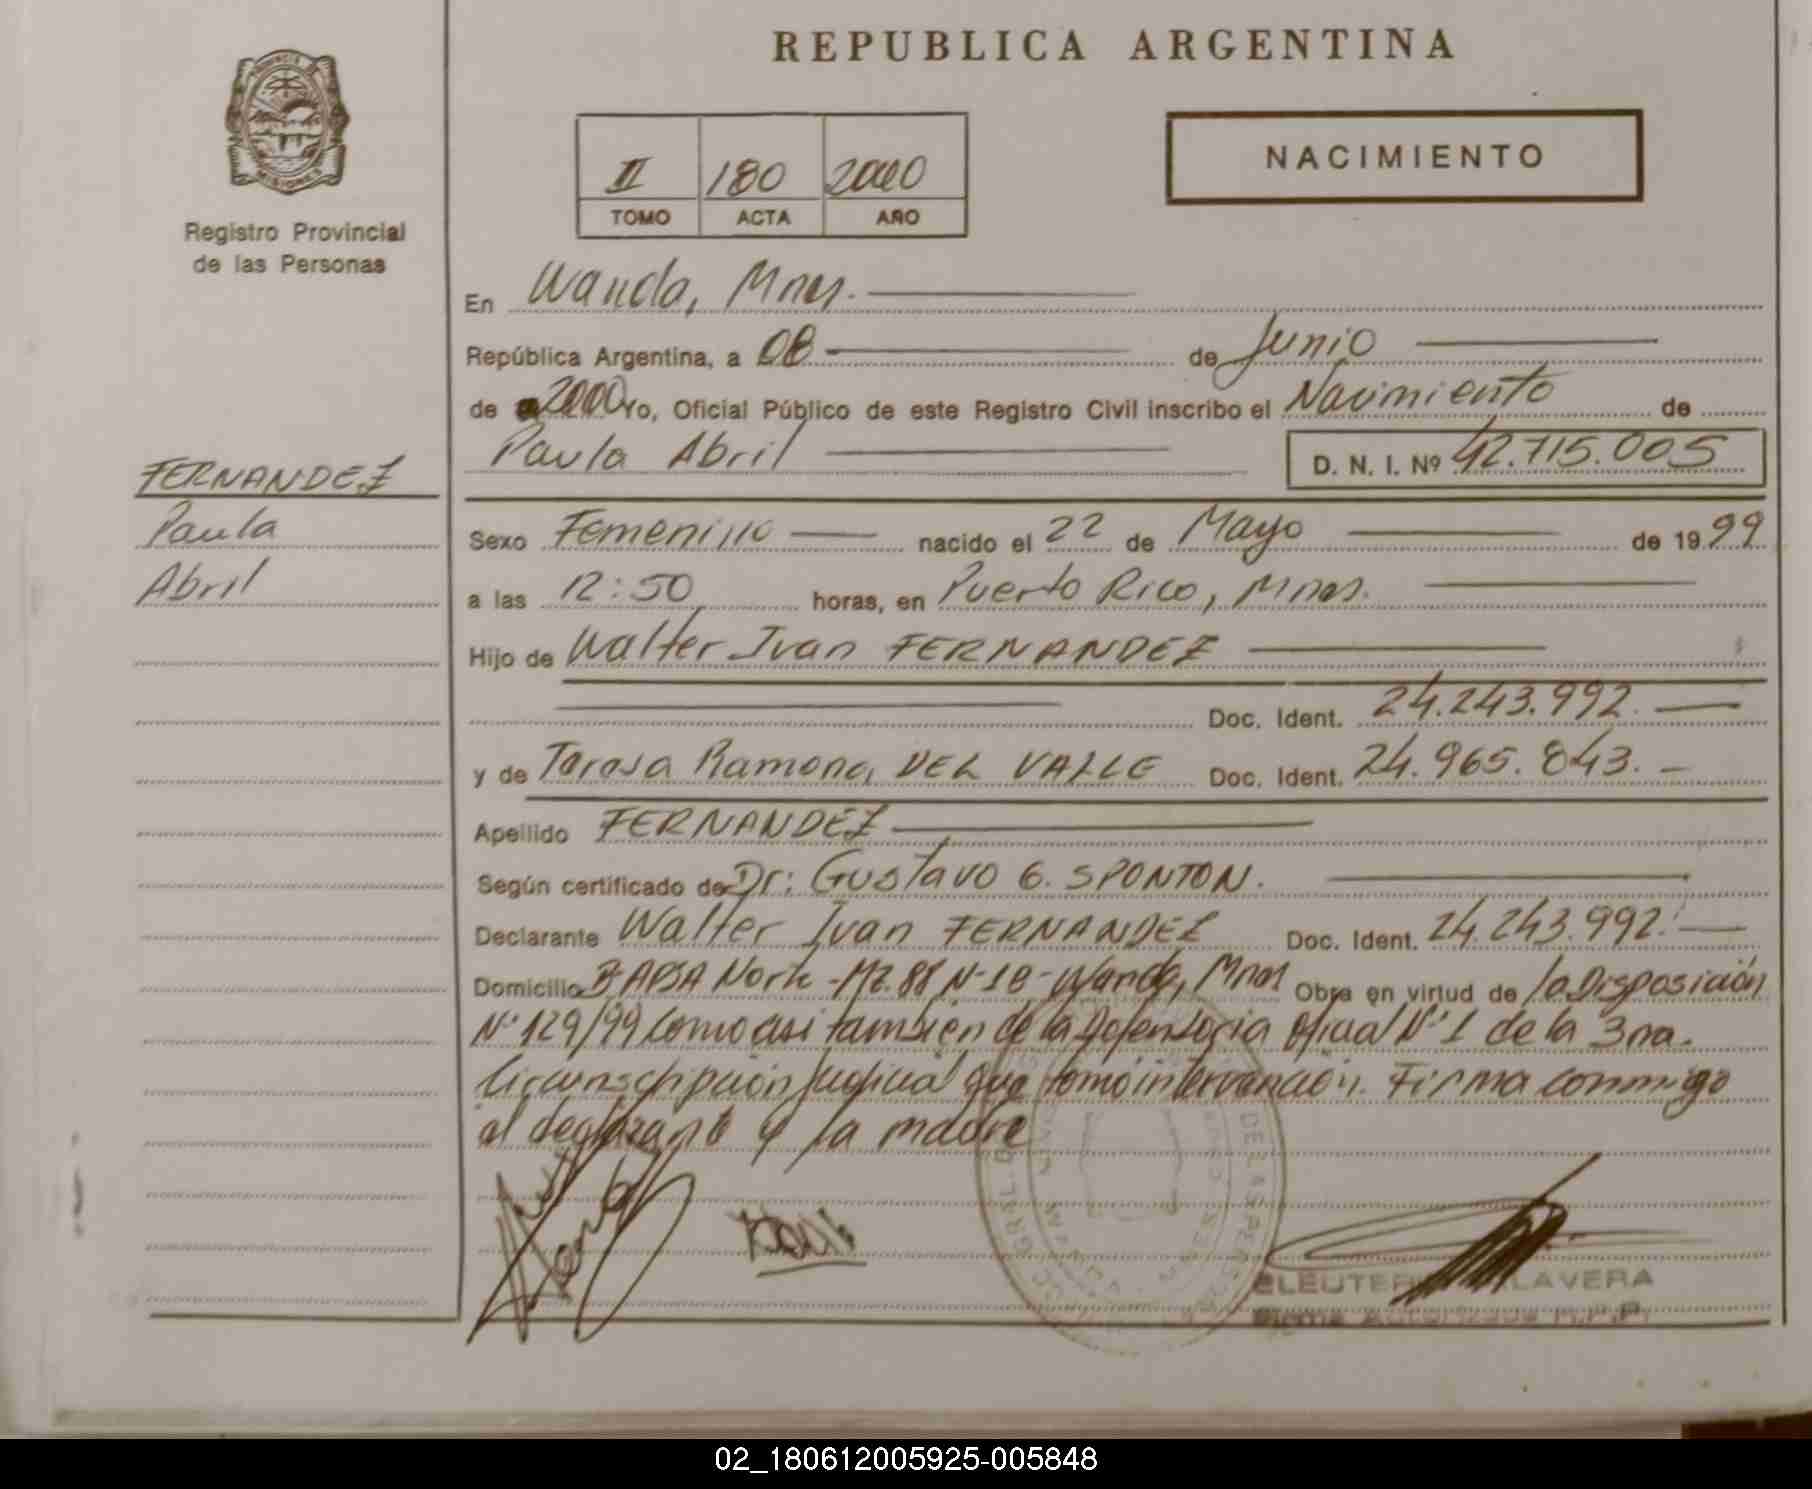 REPUBLICA ARGENTINA
PROVINCIA DE
MISIONES
Registro Provincial
de las Personas
II 180 2000
TOMO ACTA AÑO
NACIMIENTO
En Wanda, Mnes.
República Argentina, a 08 de Junio
de 2000 Yo, Oficial Público de este Registro Civil inscribo el Nacimiento de
Paula Abril D. N. I. Nº 42.715.005
FERNANDEZ
Paula
Abril
Sexo Femenino nacido el 22 de Mayo de 1999
a las 12:50 horas, en Puerto Rico, Mnes.
Hijo de Walter Ivan FERNANDEZ
Doc. Ident. 24.243.992.
y de Teresa Ramona, DEL VALLE Doc. Ident. 24.965.843.
Apellido FERNANDEZ
Según certificado de Dr: Gustavo G. SPONTON.
Declarante Walter Ivan FERNANDEZ Doc. Ident. 24.243.992.
Domicilio Bº APSA Norte - Mz. 88 Nº 18 - Wanda, Mnes Obra en virtud de la Disposición
Nº 129/99 como asi tambien de la Defensoria Oficial Nº 1 de la 3ra.
Circunscripción Judicial que tomó intervención. Firma conmigo
el declarante y la madre
DE LAS PER
ELEUTER LAVERA
Firma Autorizada R.P.P.
02_180612005925-005848